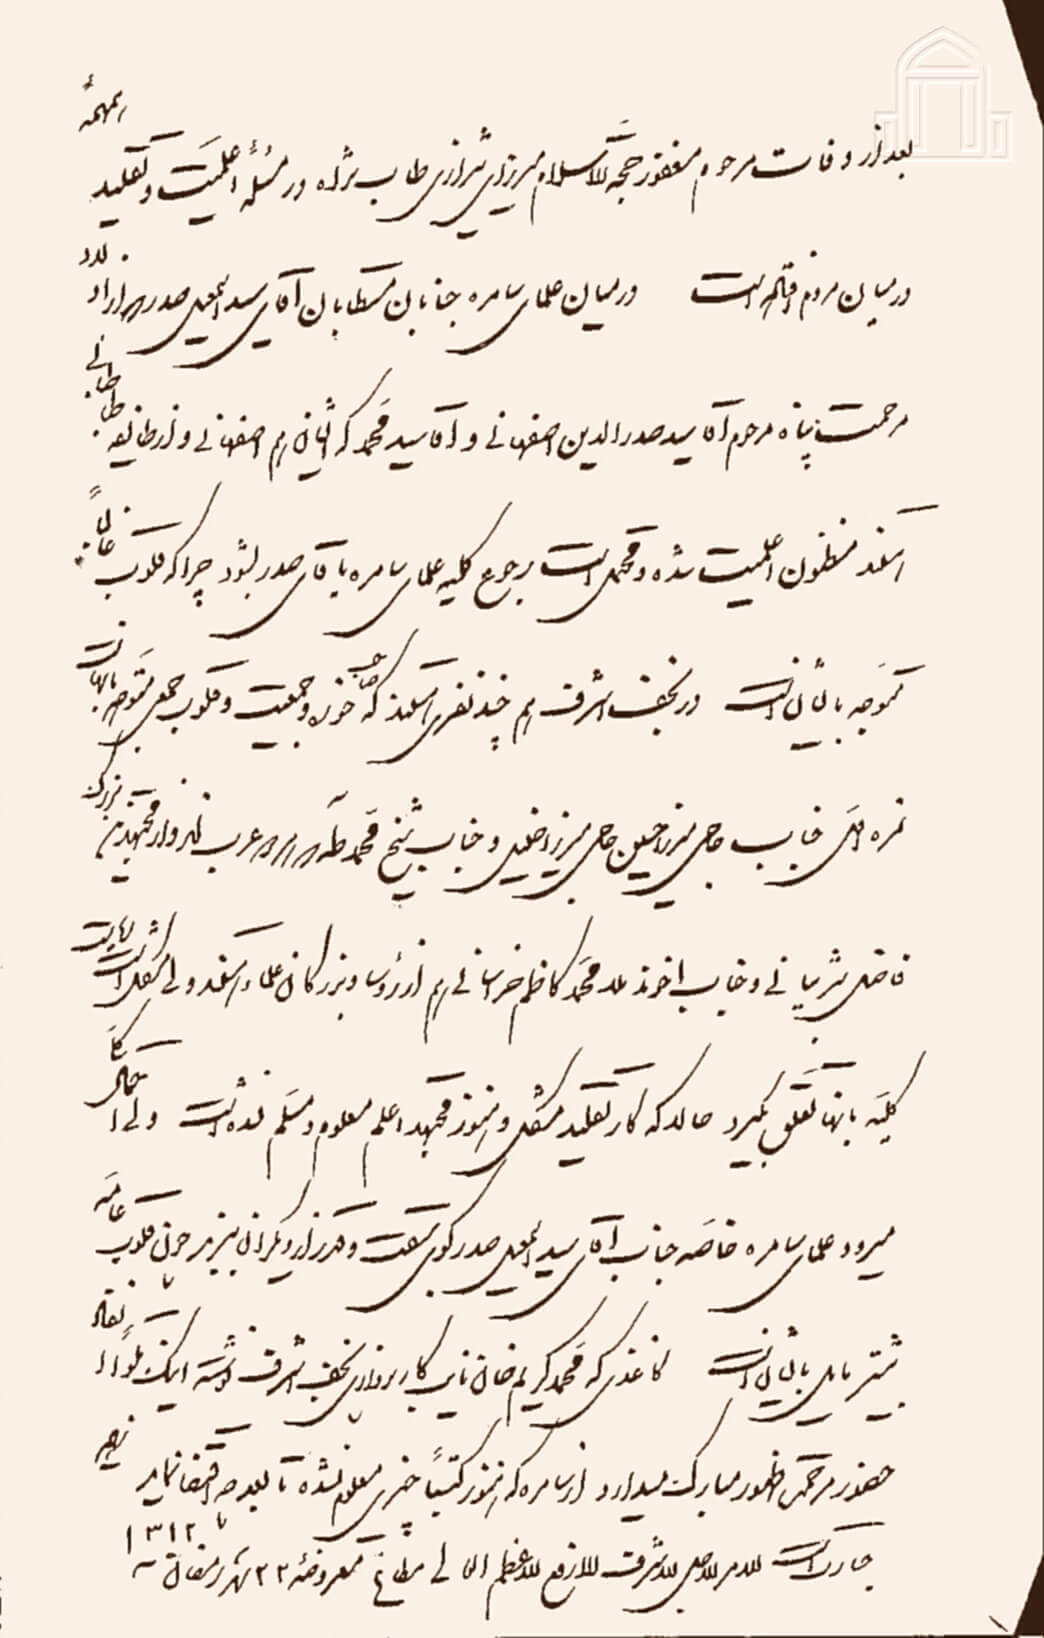 بعد از وفات مرحوم مغفور حجة الاسلام میرزای شیرازی طاب ثراه در مسئلهٔ اعلمیت و تقلید
در میان مردم است در میان علمای سامره جنابان مستطابان آقای سید اسمعیل صدر
مرحمت پناه مرحوم آقا سید صدرالدین اصفهانی و آقا سید محمد که ایشان هم اصفهانی و از طایفه طباطبائی
هستند مظنون اعلمیت شده و محتمل است رجوع کلیه علمای سامره باقای صدر بشود چرا که قلوب غالباً
متوجه بایشان است در نجف اشرف هم چند نفری هستند که صاحب حوزه و جمعیت و قلوب جمعی متوجه بانهاست
نمره اول جناب حاجی میرزا حسین حاجی میرزا خلیل و جناب شیخ محمد طه عرب مجتهدین بزرگند
فاضل شربیانی و جناب اخوند ملا محمد کاظم خراسانی هم از رؤسا و بزرگان علماء هستند ولی مشکل است
کلیه بانها تعلق بگیرد حالا که کار تقلید مشکل و هنوز مجتهد اعلم معلوم و مسلم نشده است ولی احتمال کلی
میرود علمای سامره خاصه جناب آقای سید اسمعیل صدر گوی سبقت از دیگران قلوب عامه
بیشتر مایل بایشان است کاغذی که محمد کریم خان نایب کارپردازی نجف اشرف نوشته اینک
حضور مرحمت ظهور مبارک میدارد از سامره که هنوز کتباً چیزی معلوم نشده تا بعد چه اقتضا نماید
الامر الاجل الاشرف الارفع الاعظم العالی مطاع معروضهٔ ۲۲ شهر رمضان سنه ۱۳۱۲